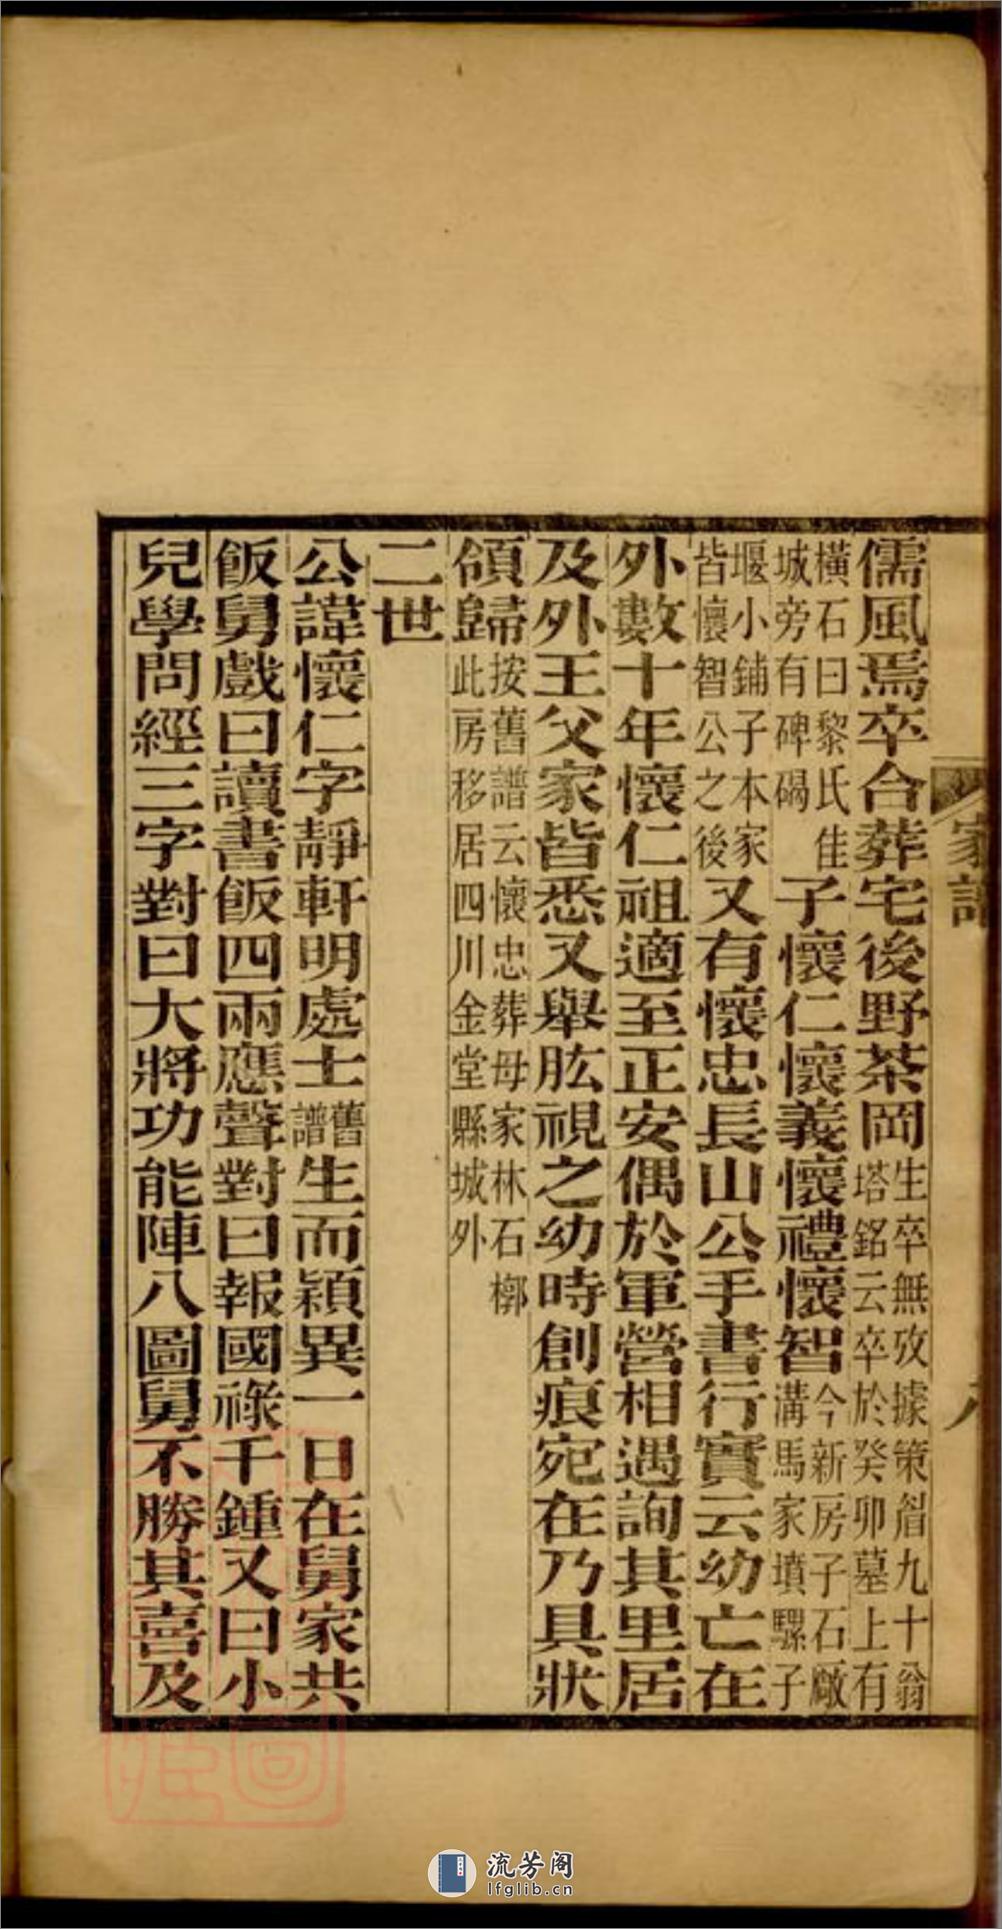 家譜
八
儒風焉卒合葬宅後野茶岡生卒無攷據策眉九十翁塔銘云卒於癸卯墓上有
橫石曰黎氏佳城旁有碑碣子懷仁懷義懷禮懷智今新房子石廠溝馬家墳騾子
堰小鋪子本家皆懷智公之後又有懷忠長山公手書行實云幼亡在
外數十年懷仁祖適至正安偶於軍營相遇詢其里居
及外王父家皆悉又舉肱視之幼時創痕宛在乃具狀
領歸按舊譜云懷忠葬母家林石槨此房移居四川金堂縣城外
二世
公諱懷仁字靜軒明處士舊譜生而穎異一日在舅家共
飯舅戲曰讀書飯四兩應聲對曰報國祿千鍾又曰小
兒學問經三字對曰大將功能陣八圖舅不勝其喜及
流芳阁
lfglib.cn